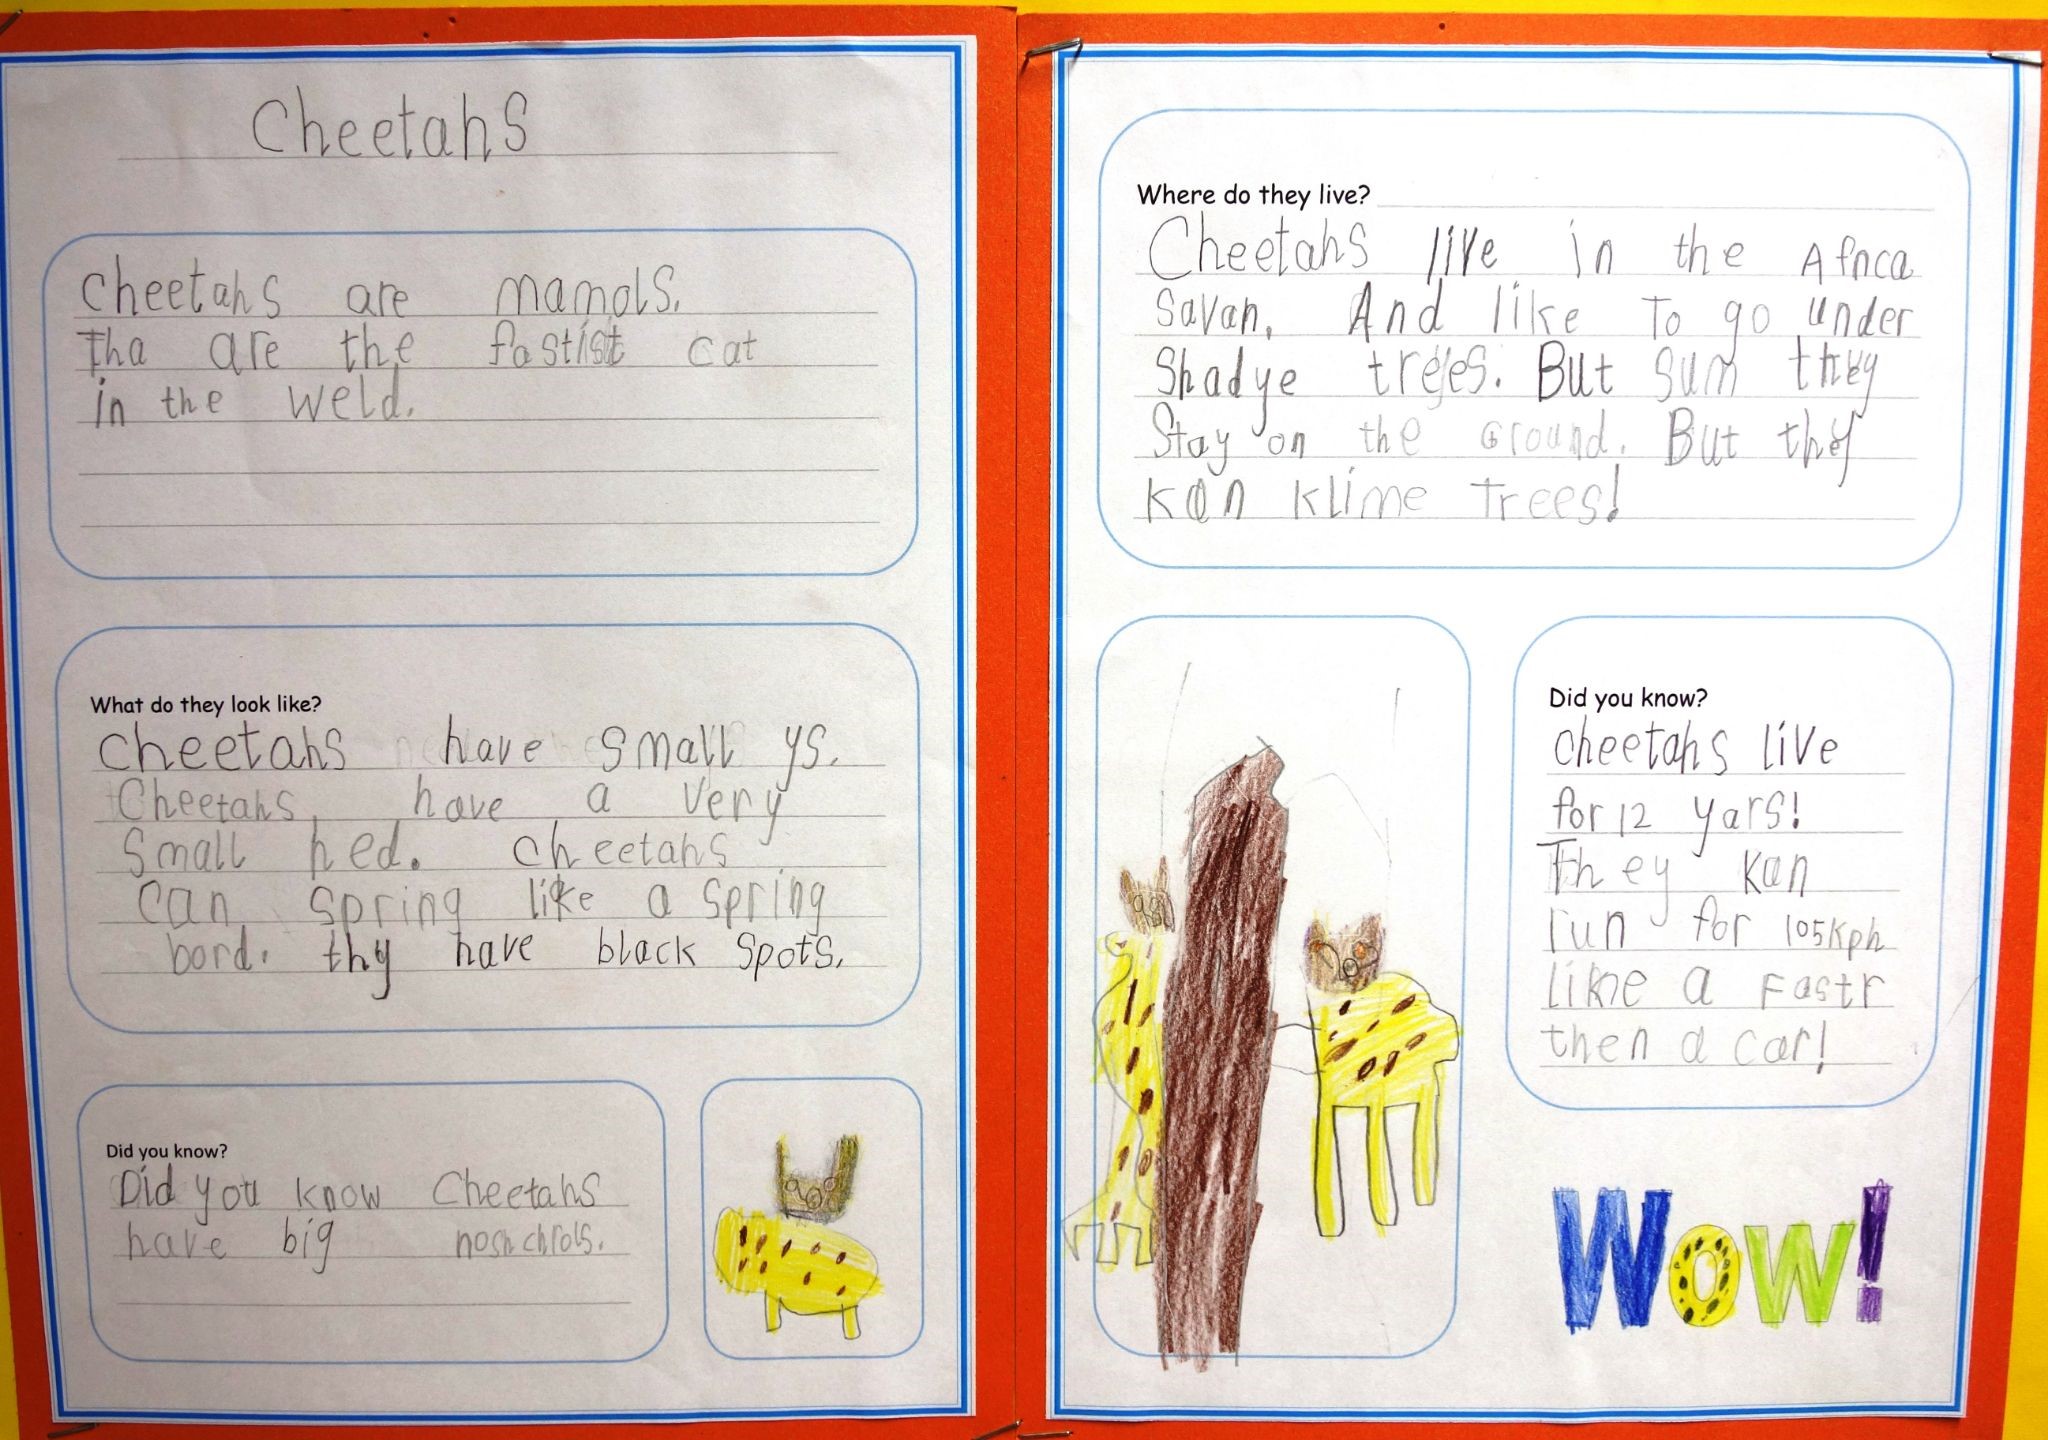 Cheetahs
cheetahs are mamols.
Tha are the fastist cat
in the weld.
What do they look like?
cheetahs have small ys.
Cheetahs have a very
small hed. cheetahs
can spring like a spring
bord. thy have black spots.
Did you know?
Did you know Cheetahs
have big noshchrols.
Where do they live?
Cheetahs live in the Africa
Savan. And like To go under
Shadye trees. But sum they
Stay on the Ground. But they
kan klime Trees!
Did you know?
cheetahs live
for 12 yars!
They kan
run for 105kph
like a Fastr
then a car!
Wow!